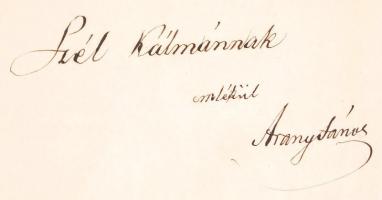 Szél Kálmánnak
emlékül
Arany János